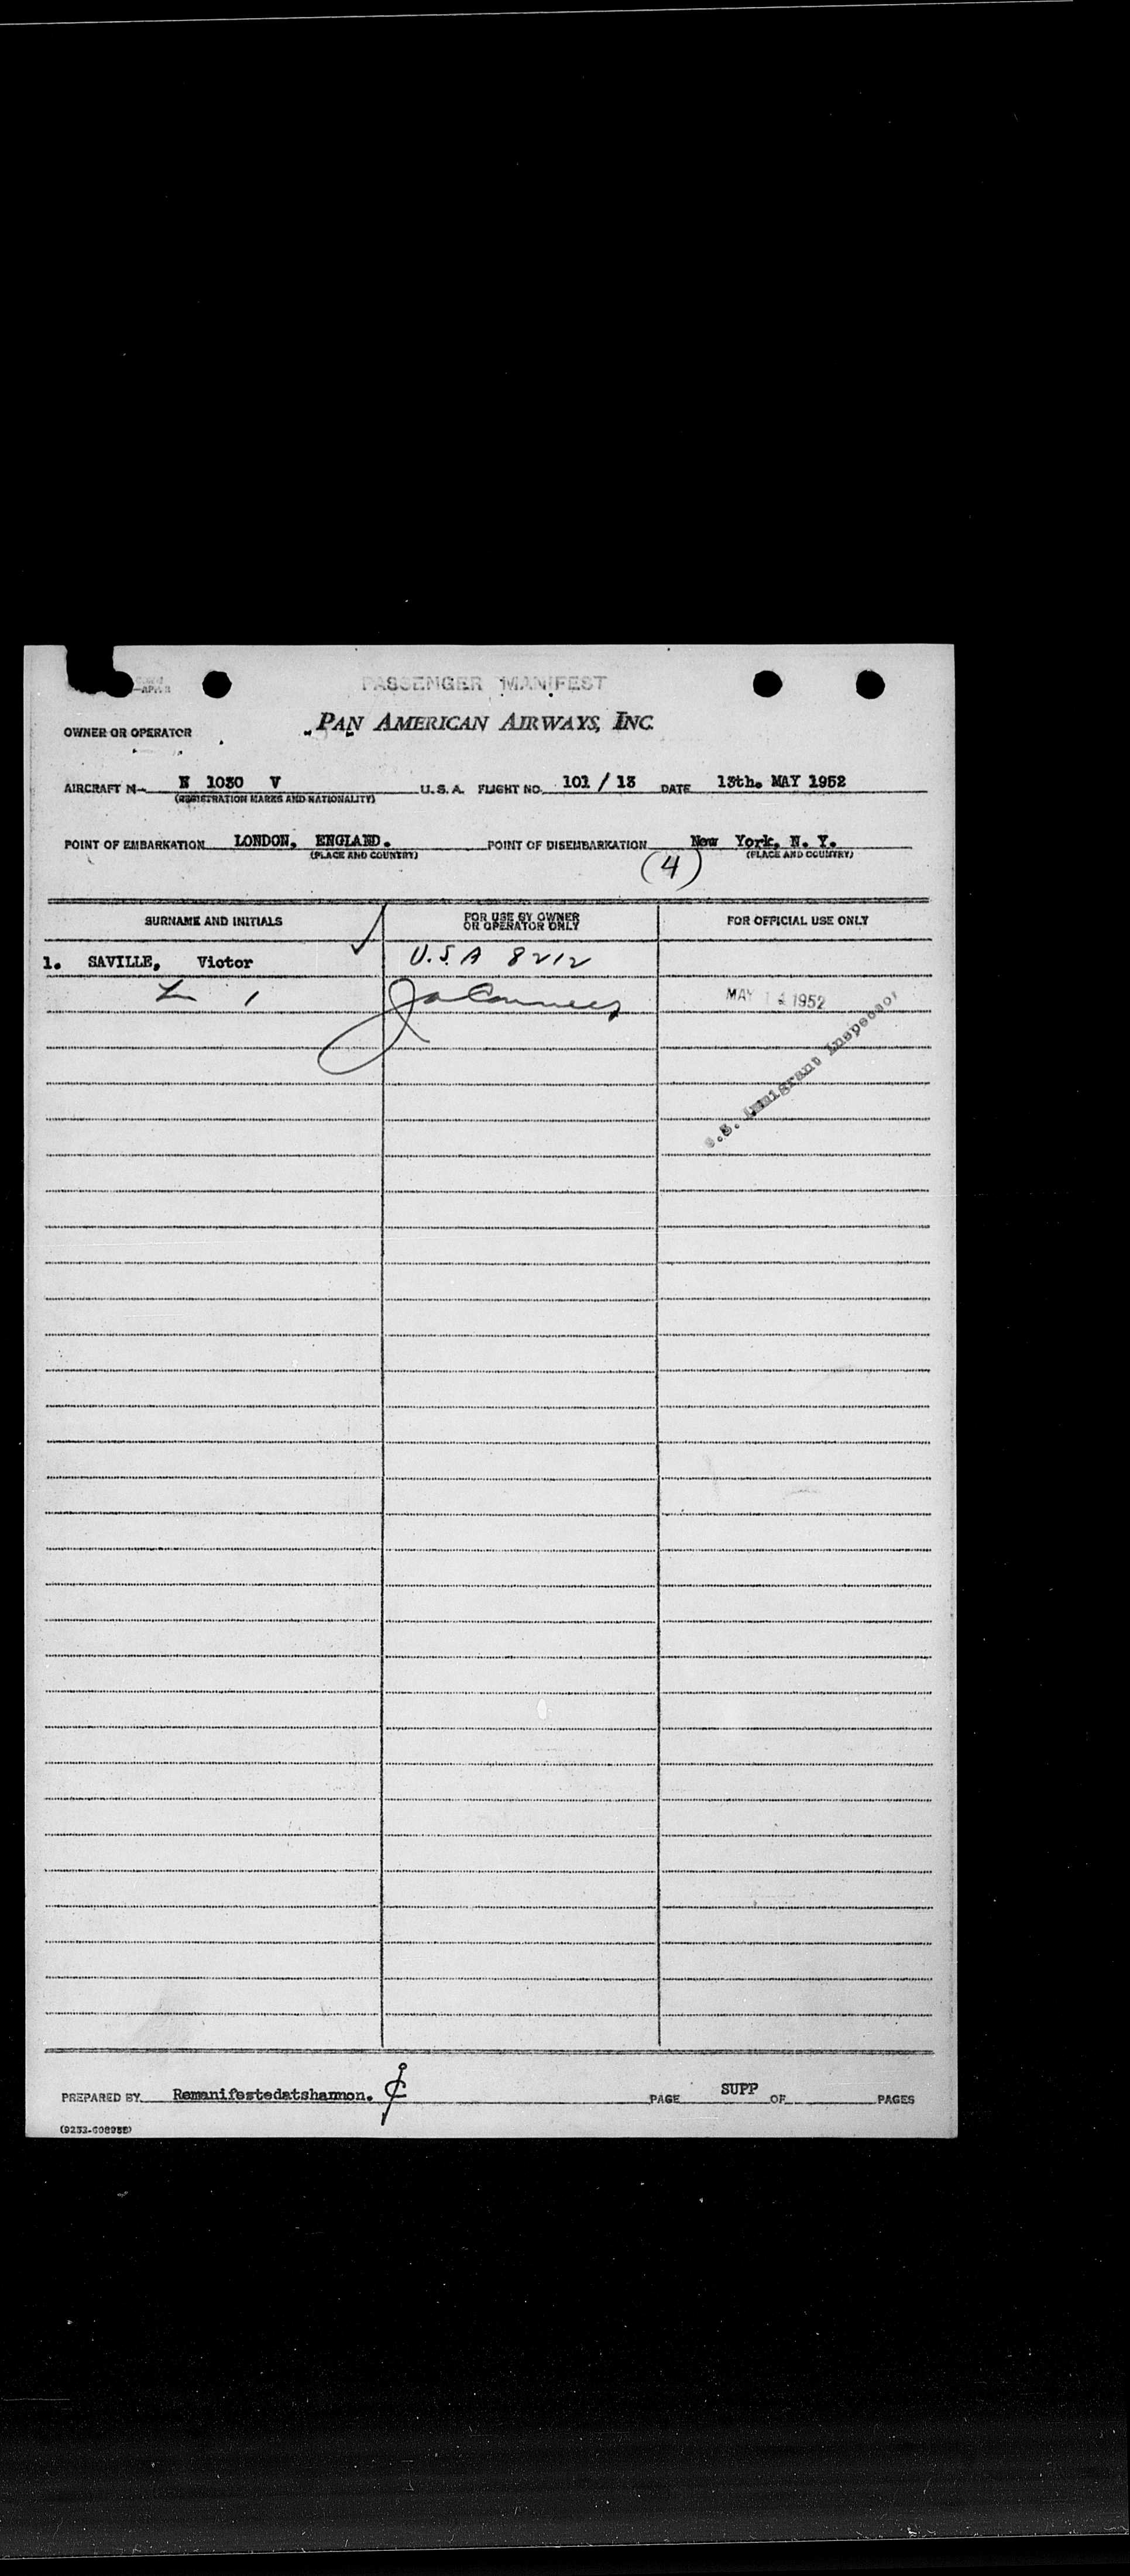 PASSENGER MANIFEST
PAN AMERICAN AIRWAYS, INC.
OWNER OR OPERATOR
AIRCRAFT N- N 1030 V U. S. A. FLIGHT NO. 101 / 13 DATE 13th. MAY 1952
(REGISTRATION MARKS AND NATIONALITY)
POINT OF EMBARKATION LONDON, ENGLAND. POINT OF DISEMBARKATION New York, N. Y.
(PLACE AND COUNTRY) (PLACE AND COUNTRY)
(4)
SURNAME AND INITIALS FOR USE BY OWNER OR OPERATOR ONLY FOR OFFICIAL USE ONLY
1. SAVILLE, Victor U.S.A 8212
MAY 1952
U.S. Immigrant Inspector
PREPARED BY Remanifestedatshannon. PAGE SUPP OF PAGES